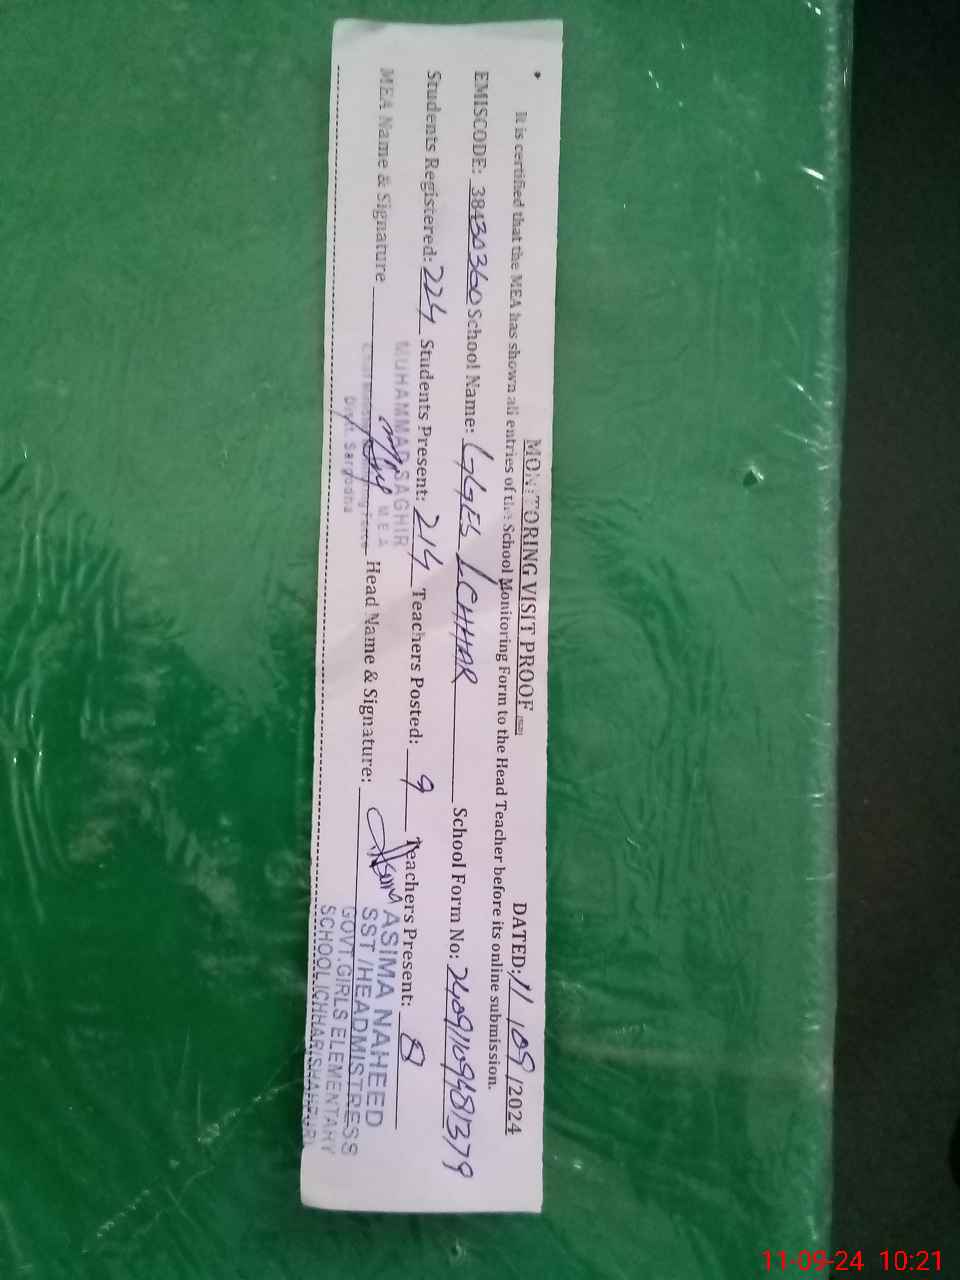 MONITORING VISIT PROOF
DATED: 11/09/2024
It is certified that the MEA has shown all entries of the School Monitoring Form to the Head Teacher before its online submission.
EMISCODE: 38430360 School Name: GGES ICHHAR School Form No: 24091109481379
Students Registered: 224 Students Present: 214 Teachers Posted: 9 Teachers Present: 8
MEA Name & Signature Head Name & Signature:
MUHAMMAD SAGHIR
M E A
Distt: Sargodha
ASIMA NAHEED
SST /HEADMISTRESS
GOVT.GIRLS ELEMENTARY
SCHOOL ICHHAR(SHAHPUR)
11-09-24 10:21